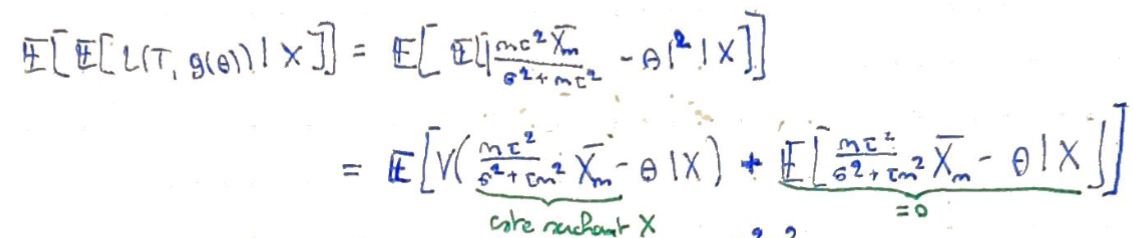 𝔼[𝔼[L(T, g(θ)) | X]] = 𝔼[𝔼[|mτ²X̄ₘ / (σ² + mτ²) - θ|² | X]]
= 𝔼[V(mτ² / (σ² + τm²) X̄ₘ - θ | X) + 𝔼[mτ² / (σ² + τm²) X̄ₘ - θ | X]]
cste sachant X = 0